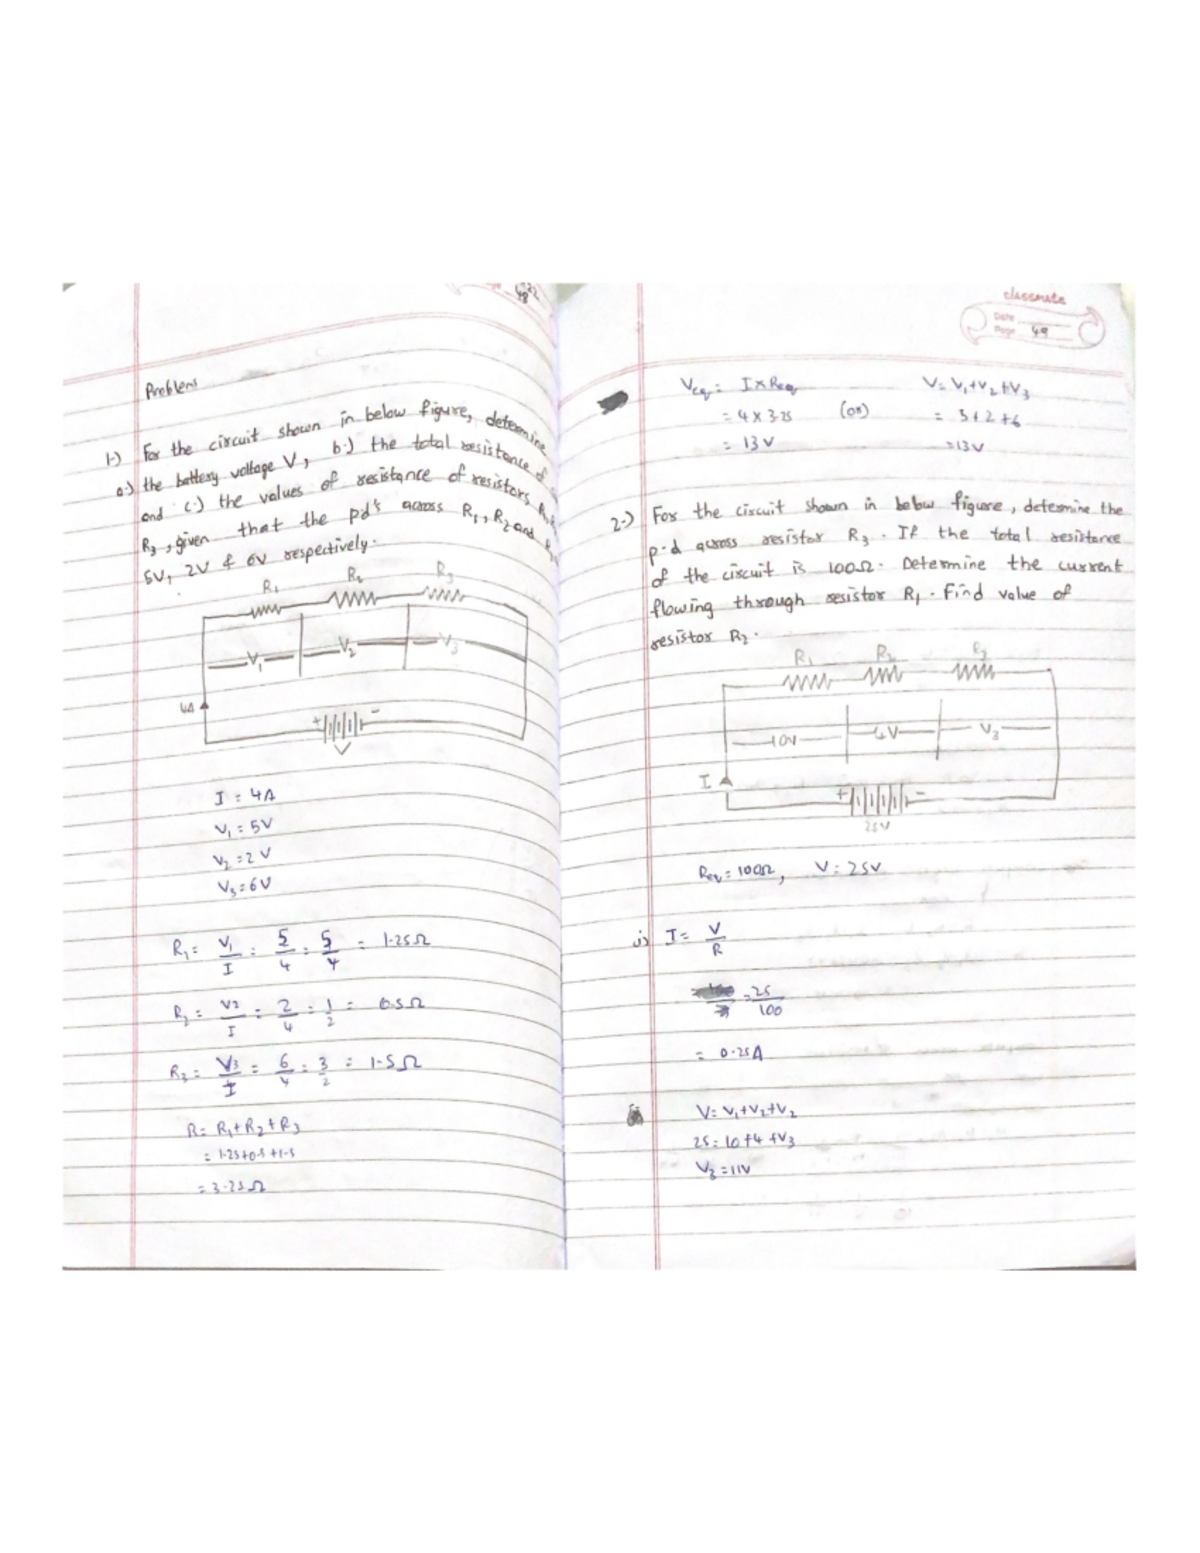 48
Problems
1.) For the circuit shown in below figure, determine
a.) the battery voltage V, b.) the total resistance of
and c.) the values of resistance of resistors
R3, given that the pd's across R1, R2 and
5V, 2V & 6V respectively.
R1 R2 R3
V1 V2 V3
4A
+ -
V
I = 4A
V1 = 5V
V2 = 2V
V3 = 6V
R1 = V1/I = 5/4 = 5/4 = 1.25Ω
R2 = V2/I = 2/4 = 1/2 = 0.5Ω
R3 = V3/I = 6/4 = 3/2 = 1.5Ω
R = R1+R2+R3
= 1.25+0.5+1.5
= 3.25Ω
classmate
Date
Page 49
Veq = I×Req V = V1+V2+V3
= 4×3.25 (or) = 5+2+6
= 13V =13V
2.) For the circuit shown in below figure, determine the
p.d across resistor R3. If the total resistance
of the circuit is 100Ω. Determine the current
flowing through resistor R1. Find value of
resistor R2.
R1 R2 R3
10V 4V V3
I
+ -
25V
Req = 100Ω, V = 25V
i) I = V/R
= 25/100
= 0.25A
V = V1+V2+V2
25 = 10+4+V3
V3 = 11V